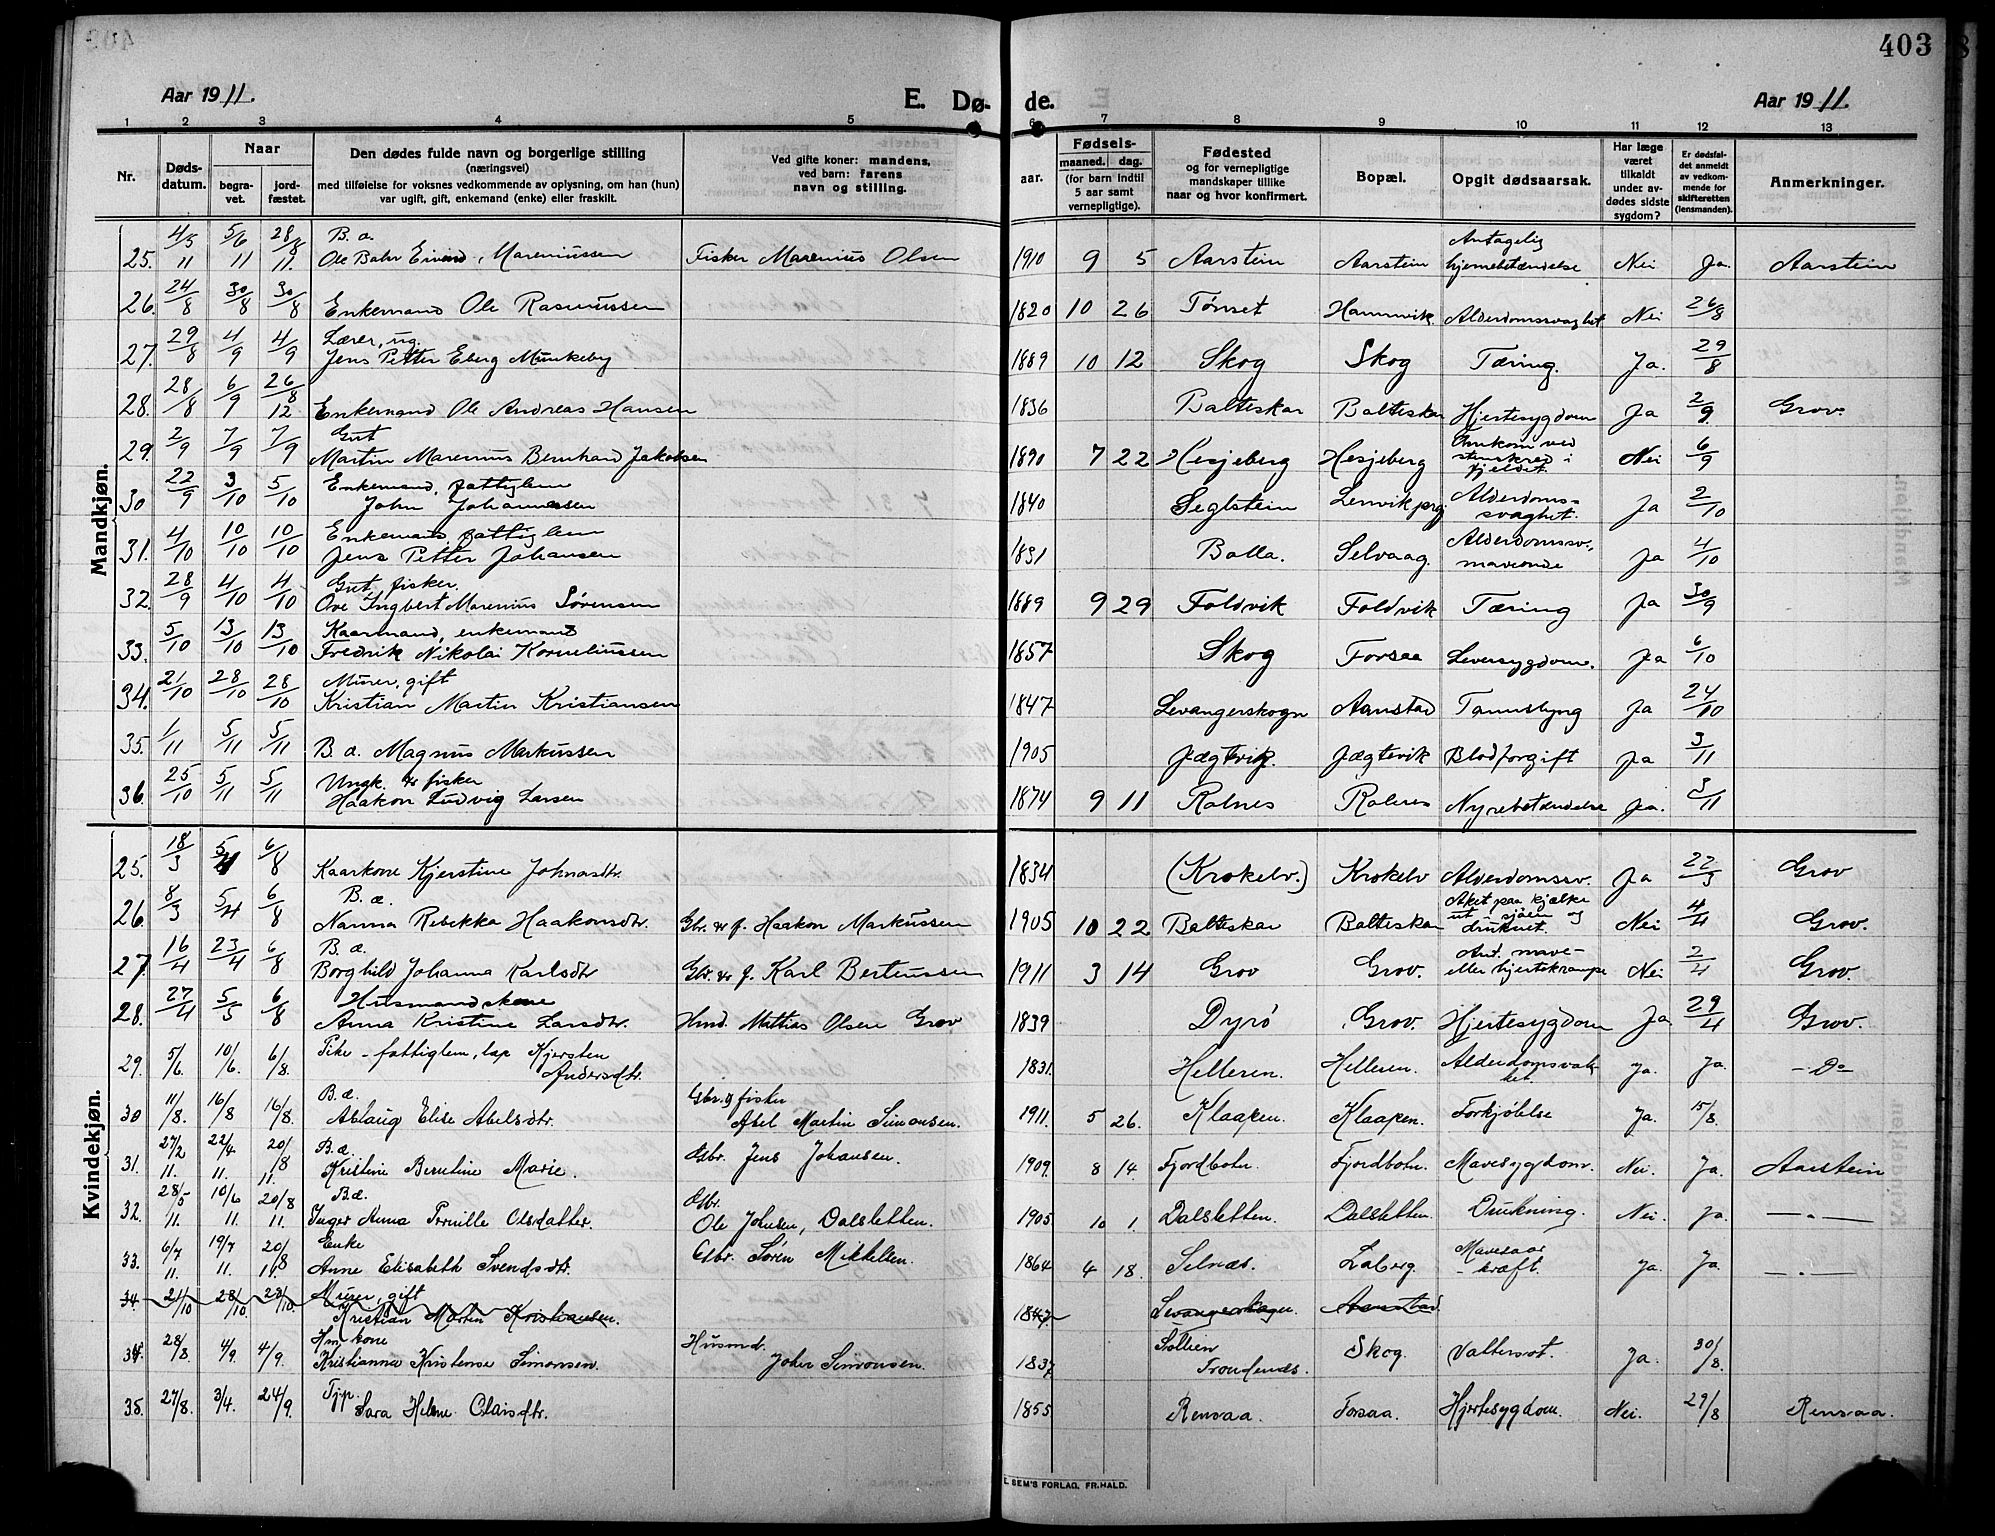 403
Aar 1911.
E. Dø- de.
Aar 1911.
1 2 3 4 5 6 7 8 9 10 11 12 13
Nr.
Døds-
datum.
Naar
begra-
vet.
jord-
fæstet.
Den dødes fulde navn og borgerlige stilling
(næringsvei)
med tilføielse for voksnes vedkommende av oplysning, om han (hun)
var ugift, gift, enkemand (enke) eller fraskilt.
Ved gifte koner: mandens,
ved barn: farens
navn og stilling.
aar.
Fødsels-
maaned. dag.
(for barn indtil
5 aar samt
vernepligtige).
Fødested
og for vernepligtige
mandskaper tillike
naar og hvor konfirmert.
Bopæl.
Opgit dødsaarsak.
Har læge
været
tilkaldt
under av-
dødes sidste
sygdom?
Er dødsfal-
det anmeldt
av vedkom-
mende for
skifteretten
(lensmanden).
Anmerkninger.
Mandkjøn.
25. 4/5 11 5/6 11 28/8 11. B. a. Ole Bahr Eivind, Mareniussen Fisker Marenius Olsen 1910 9 5 Aarstein Aarstein Antagelig hjernebetændelse Nei Ja. Aarstein
26. 24/8 30/8 30/8 Enkemand Ole Rasmussen 1820 10 26 Tønset Hamnvik. Alderdomssvaghet Nei 26/8
27. 29/8 4/9 4/9 Lærer, ug. Jens Petter Eberg Munkeby 1889 10 12 Skog Skog Tæring. Ja. 29/8
28. 28/8 6/9 26/8 12. Enkemand Ole Andreas Hansen 1836 Balteskar Balteskar Hjertesygdom Ja 2/9. Grov.
29. 2/9 7/9 7/9 Gut Martin Marenius Bernhard Jakobsen 1890 7 22 Hesjeberg Hesjeberg Omkom ved stenskred i fjeldet. Nei 6/9
30 22/9 3/10 5/10 Enkemand, fattiglem John Johannessen 1840 Seglstein Lenvik prgj Alderdoms- svaghet. Ja 2/10
31. 4/10 10/10 10/10 Enkemand, fattiglem Jens Petter Johansen 1831 Balla. Selvaag. Alderdomssv., maveonde Ja 4/10
32. 28/9 4/10 4/10 Gut, fisker. Ove Ingbert Marenius Sørensen 1889 9 29 Foldvik Foldvik Tæring Ja 30/9
33. 5/10 13/10 13/10 Kaarmand, enkemand Fredrik Nikolai Korneliussen 1857 Skog Forsaa Leversygdom. Ja 6/10
34. 21/10 28/10 28/10 Murer, gift Kristian Martin Kristiansen 1847 Levangerskogn Aanstad Ja 24/10
35. 1/11 5/11 5/11 B. a. Magnus Markussen 1905 Jægtvik. Jægtevik Blodforgift Ja 3/11
36. 25/10 5/11 5/11 Ungk. & fisker Haakon Ludvig Larsen 1874 9 11 Rolnes Rolnes Nyrebetændelse Ja. 3/11
Kvindekjøn.
25. 18/3 5/4 6/8 Kaarkone Kjerstine Johnasdtr. 1834 (Krokelv.) Krokelv Alderdomssv. Ja 22/3 Grov
26. 8/3 5/4 6/8 B. æ. Nanna Rebekka Haakonsdtr. Gbr. & f. Haakon Markussen 1905 10 22 Balteskar Balteskar Aket paa kjælke ut i sjøen og druknet. Nei 4/4 Grov.
27. 16/4 23/4 6/8 B. æ. Borghild Johanna Karlsdtr Gbr. & f. Karl Berteussen 1911 3 14 Grov Grov. Ant. mave- eller hjertekrampe Nei 2/4 Grov.
28. 27/4 5/5 6/8 Husmandskone Anna Kristine Larsdtr. Hmd. Mathias Olsen Grov 1839 Dyrø Grov. Hjertesygdom Ja 29/4 Grov.
29. 5/6. 10/6. 6/8. Pike - fattiglem, lap Kjersten Andersdtr. 1831. Helleren. Helleren. Alderdomsvak- het. Ja. Ja. - Do -
30 11/8. 16/8 16/8. B. æ. Aslaug Elise Abelsdtr. Gbr. og fisker Abel Martin Simonsen. 1911. 5 26. Klaapen. Klaapen. Forkjølelse Ja. 15/8.
31. 27/2 11. 22/4 11. 20/8 11. B. æ. Kristine Berntine Marie. Gbr. Jens Johansen. 1909. 8 14. Fjordbotn. Fjordbotn. Mavesygdom. Nei. Ja. Aarstein
32. 28/5 11. 10/6 11. 20/8 11. B. æ. Inger Anna Pernille Olsdatter. Gbr. Ole Johnsen, Dalsletten. 1905. 10 1. Dalsletten. Dalsletten. Drukning. Nei. Ja. — " —
33. 6/7 11. 19/7 11. 20/8 11. Enke Anne Elisabeth Svendsdtr. Gbr. Søren Mikkelsen. 1864 4 18. Selnæs. Laberg. Mavesaar - kræft. Ja. Ja. — " —
34. 21/10 28/10 28/10. Murer, gift Kristian Martin Kristiansen. 1847 Levangerskogn. Aanstad.
34. 28/8. 4/9. 4/9. Hm. kone Kristianna Kristense Simonsen. Husmd. Johan Simonsen. 1837 Trondenæs. Skog. Vattersot. Ja. 30/8.
35. 27/8. 3/4. 24/9. Tjp. Sara Helene Olaisdtr. 1855 Rensaa. Forsaa. Hjertesygdom. Nei. 29/8 Rensaa.
E. SEM'S FORLAG, FR.HALD.